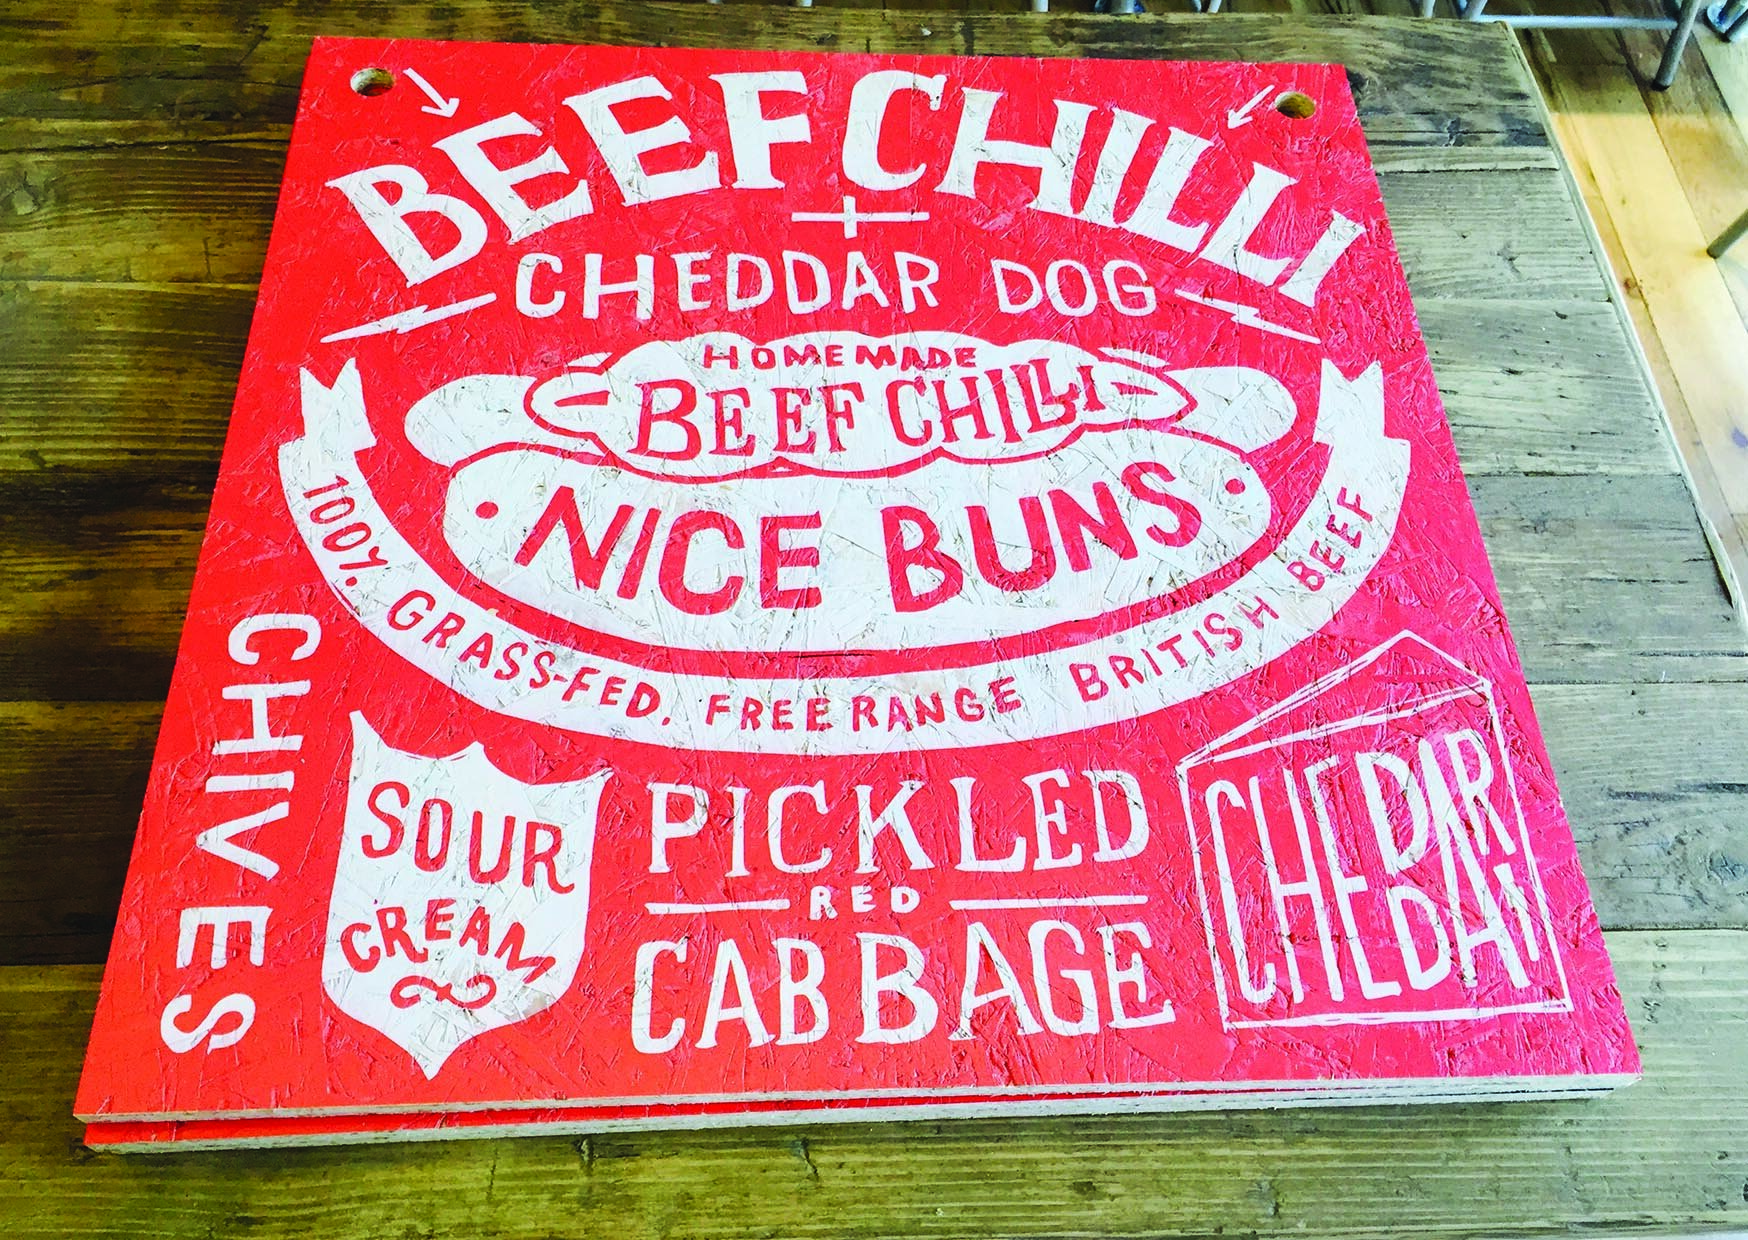 BEEF CHILLI
+
CHEDDAR DOG
HOMEMADE
BEEF CHILLI
NICE BUNS
100% GRASS-FED. FREE RANGE BRITISH BEEF
CHIVES
SOUR
CREAM
PICKLED
RED
CABBAGE
CHEDDAR